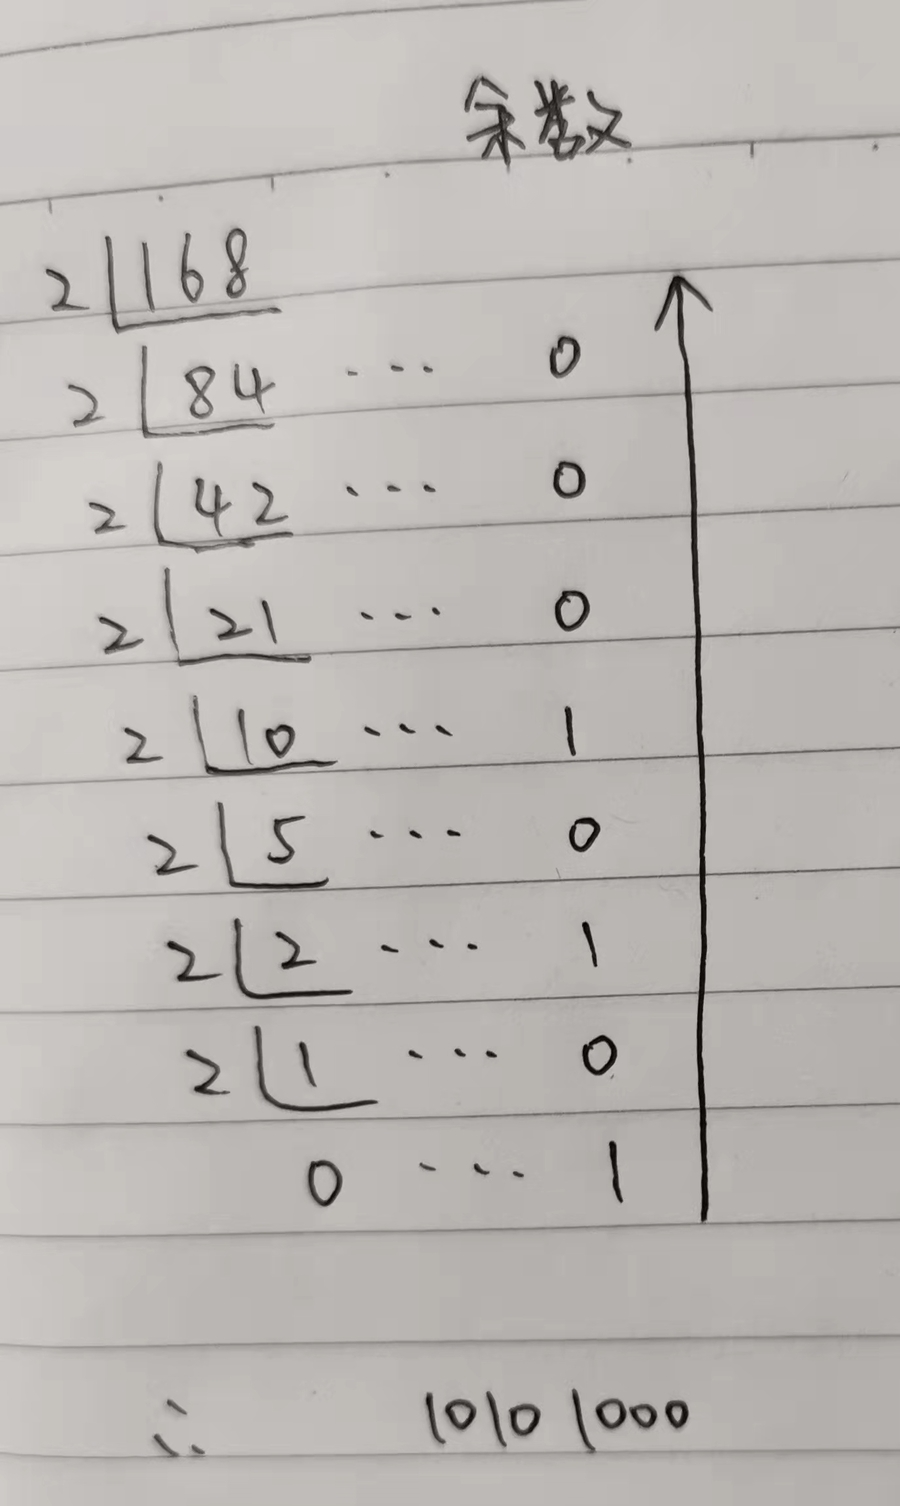 余数
2 168
2 84 ... 0
2 42 ... 0
2 21 ... 0
2 10 ... 1
2 5 ... 0
2 2 ... 1
2 1 ... 0
0 ... 1
∴ 1010 1000